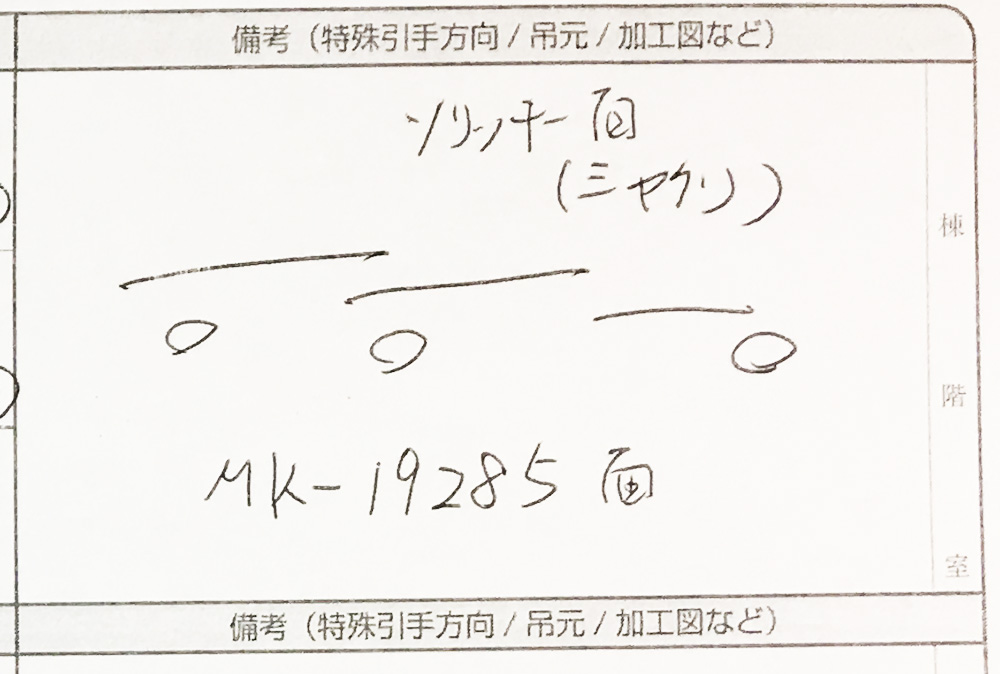 備考（特殊引手方向 / 吊元 / 加工図など）
ソリッチー面
(ミヤクリ)
棟
階
MK-19285面
室
備考（特殊引手方向 / 吊元 / 加工図など）